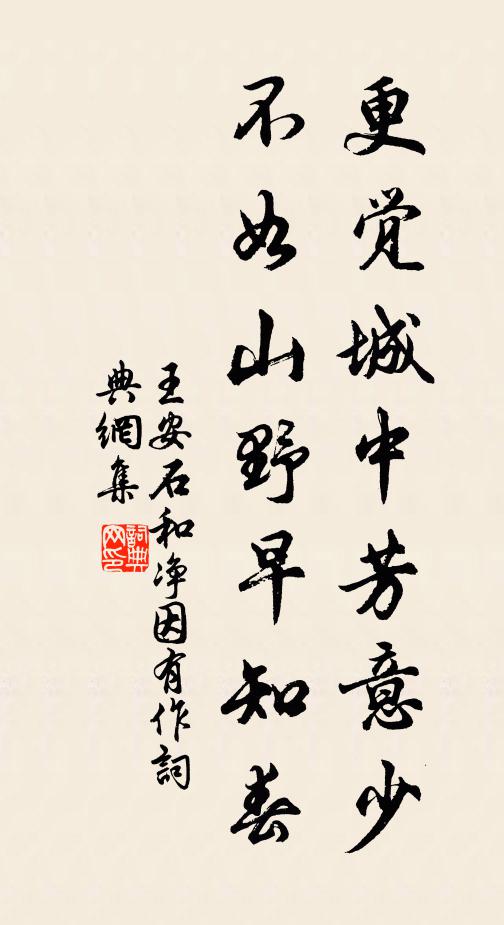 更觉城中芳意少
不如山野早知春
王安石和净因有作詞
典網集
詞典網印